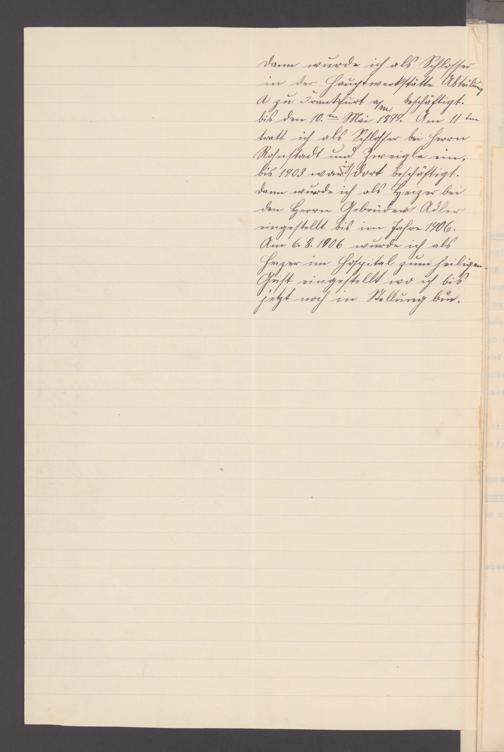 dann wurde ich als Schlosser
in der Hauptwerkstätte Abteilung
A zu Frankfurt a/M. beschäftigt.
bis den 10.ten Mai Am 11ten
tratt ich als Schlosser bei Herrn
und Zweigle ein,
bis 1903 war dort beschäftigt.
dann wurde ich als Heizer bei
den Herrn Gebrüder Adler
eingestellt bis im Jahre 1906.
Am 6.8.1906 wurde ich als
Heizer im Hospital zum heiligen
Geist eingestellt wo ich bis
jetzt noch in Stellung bin.